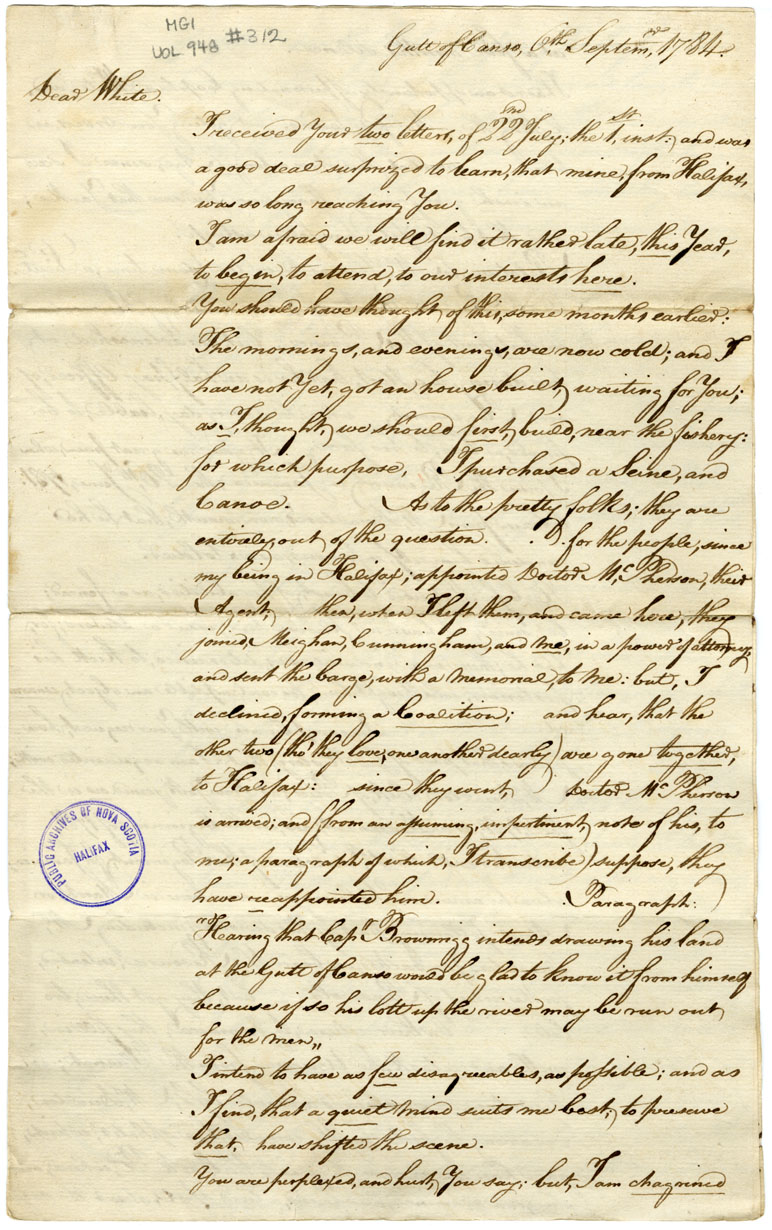 MG1
VOL 948 #312
Gutt of Canso, 6th Septemr, 1784.
Dear White.
I received Your two letters, of 22nd July; the 1st, inst: and was
a good deal surprized to learn, that mine, from Halifax,
was so long reaching You.
I am afraid we will find it rather late, this Year,
to begin, to attend, to our interests here.
You should have thought of this, some months earlier:
The mornings, and evenings, are now cold; and I
have not Yet, got an house built, waiting for You;
as I, thought, we should first, build, near the fishery:
for which purpose, I purchased a Seine, and
Canoe. As to the pretty folks; they are
entirely, out, of the question. for the people, since
my being in Halifax; appointed Doctor McPherson, their
Agent, then, when I left them, and came here, they
joined, Meighan, Cunningham, and me, in a power of attorney,
and sent the barge, with a memorial, to me: but, I
declined, forming a Coalition; and hear, that the
other two (tho' they love, one another dearly) are gone together,
to Halifax: since they went, Doctor McPherson
is arrived; and (from an assuming, impertinent, note of his, to
me; a paragraph of which, I transcribe) suppose, they
have reappointed him. Paragraph:
"Haring that Capn Brownrigg intends drawing his land
at the Gutt of Canso would be glad to know it from himself
because if so his lott up the river may be run out
for the men,,
I intend to have as few disagreeables, as possible; and as
I find, that a quiet mind suits me best; to preserve
that, have shifted the scene.
You are perplexed, and hurt, You say; but, I am chagrined
PUBLIC ARCHIVES OF NOVA SCOTIA
HALIFAX